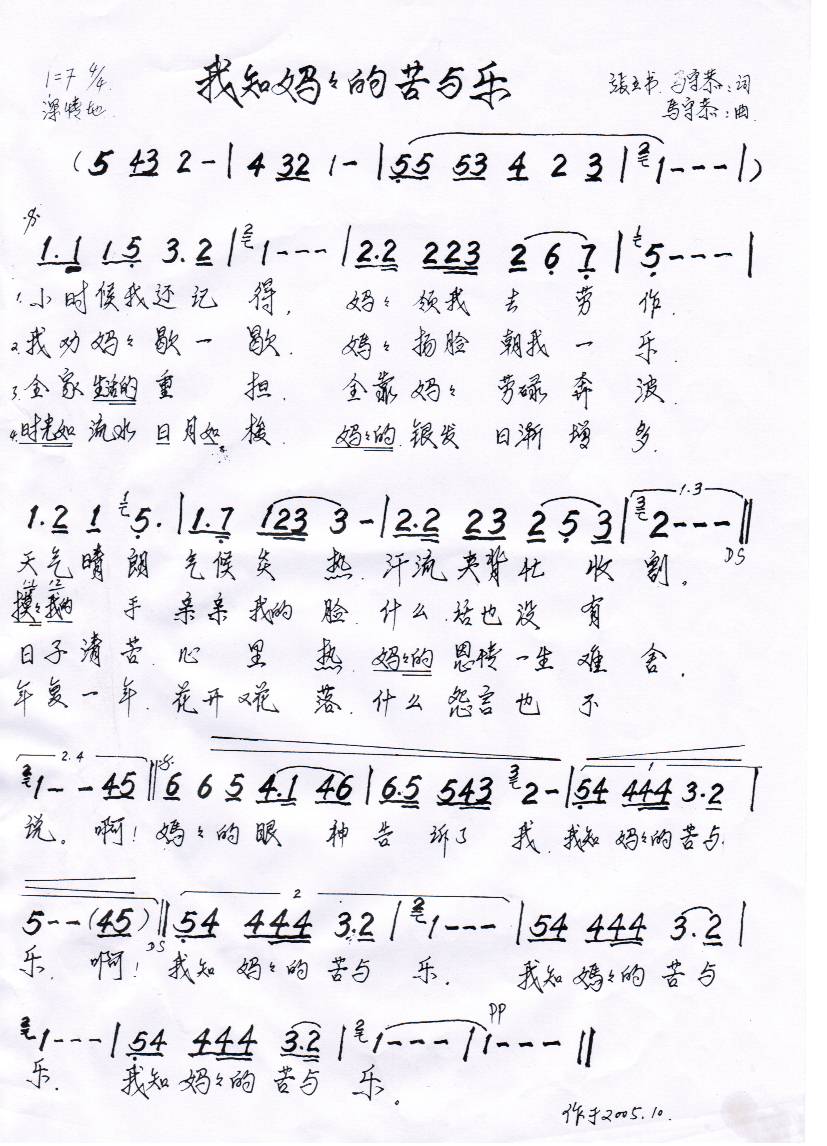 我知妈々的苦与乐
1=7 4/4
深情地
張立书 马守恭:词
馬守恭:曲
(5 43 2 - | 4 32 1 - | 55 53 4 2 3 | 1 - - - |)
1.1 15 3.2 | 1 - - - | 2.2 223 2 6 7 | 5 - - - |
1.小时候我还记得, 妈々领我去劳作.
2.我劝妈々歇一歇. 媽々扬脸朝我一乐.
3.全家生活的重担. 全靠妈々劳碌奔波.
4.时光如流水日月如梭. 妈々的银发日渐增多.
1.2 1 5. | 1.7 123 3 - | 2.2 23 2 5 3 | 2 - - - ‖
1.3
DS
天气晴朗气候炎热.汗流夹背忙收割.
摸々我的手亲亲我的脸.什么话也没有
日子清苦.心里热.妈々的恩情一生难舍.
年复一年.花开又花落.什么怨言也不
2.4
1 - - 45 ‖ 6 6 5 4.1 46 | 6.5 543 2 - | 54 444 3.2 |
说。啊!媽々的眼神告诉了我.我知妈々的苦与
5 - - (45) ‖ 54 444 3.2 | 1 - - - | 54 444 3.2 |
DS
乐.啊!我知妈々的苦与乐. 我知媽々的苦与
PP
1 - - - | 54 444 3.2 | 1 - - - | 1 - - - ‖
乐. 我知妈々的苦与乐。
作于2005.10.